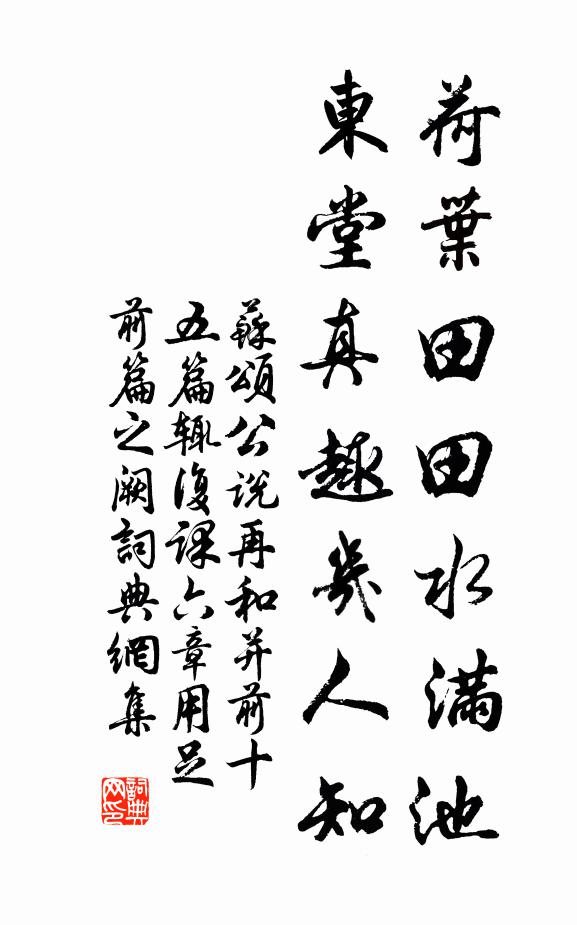 荷葉田田水滿池
東堂真趣幾人知
蘇頌公說再和并前十
五篇輒復課六章用足
前篇之闕詞典網集
詞典網印